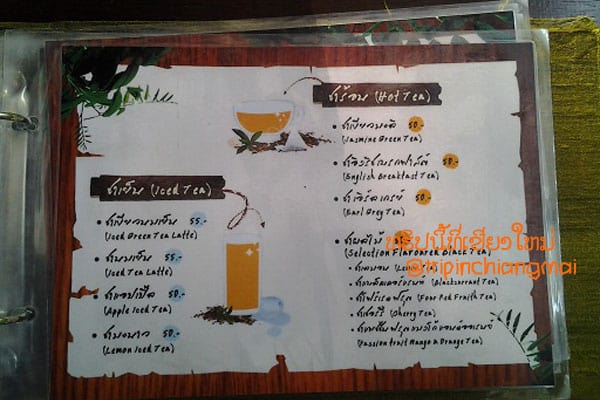 ชาร้อน (Hot Tea)
• ชาเขียวมะลิ 50.-
(Jasmine Green Tea)
• ชาอิงลิชเบรกฟาสต์ 50.-
(English Breakfast Tea)
• ชาเอิร์ลเกรย์ 50.-
(Earl Grey Tea)
• ชาผลไม้
(Selection Flavoured Black Tea)
(Blackcurrant Tea)
(Four Red Fruith Tea)
• ชาเชอร์รี่ (Cherry Tea)
(Passion fruit Mango & Orange Tea)
ชาเย็น (Iced Tea)
• ชาเขียวนมเย็น 55.-
(Iced Green Tea Latte)
• ชานมเย็น 55.-
(Iced Tea Latte)
• ชาแอปเปิ้ล 50.-
(Apple Iced Tea)
• ชามะนาว 50.-
(Lemon Iced Tea)
ทริปนี้ที่เชียงใหม่
@tripinchiangmai